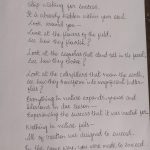 Stop wishing for success.
It is already hidden within your soul.
Look around you —
Look at the flowers of the field.
See how they flourish?
Look at the sequoias that stand tall in the forest,
See how they thrive?
Look at the caterpillars that roam the earth,
See how they transform into magnificent butter-
flies?
Everything in nature expands, grows and
blossoms in due season —
Experiencing the success that it was created for.
Nothing in nature fails —
All of creation was designed to succeed.
In the same way, you were made to succeed